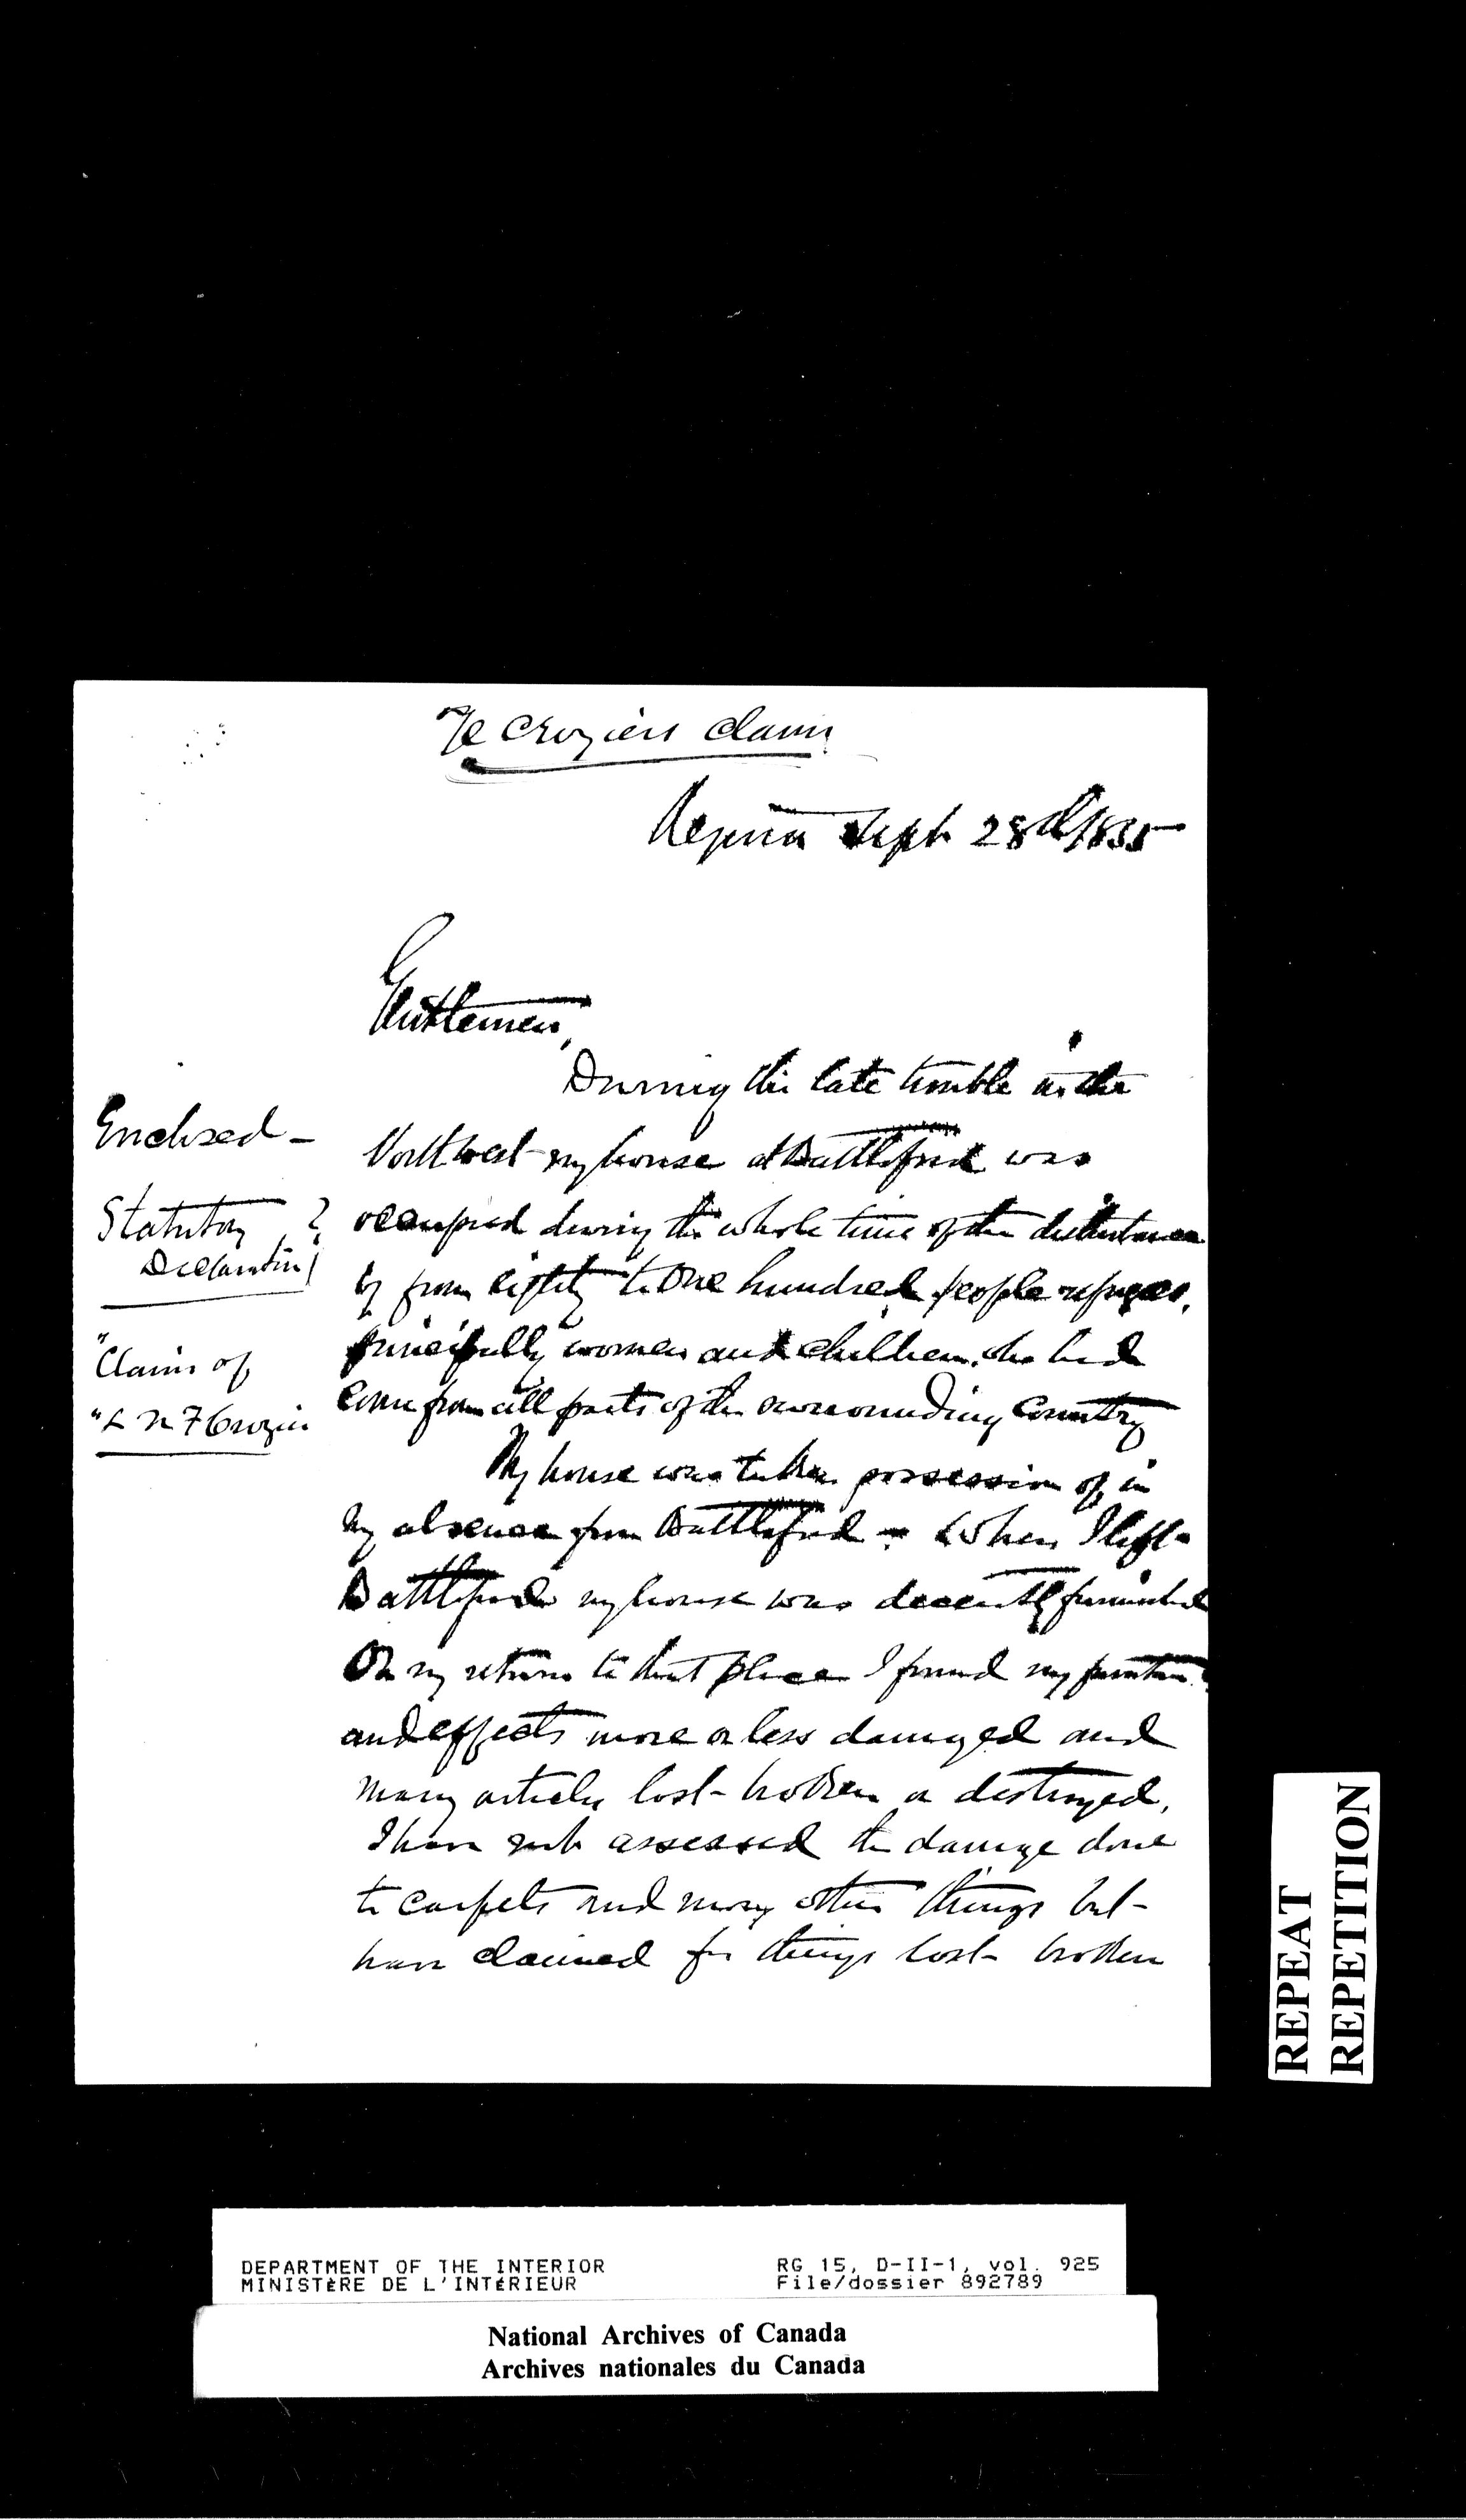 Re Croziers claim
Regina Sept 28d/1885
Gentlemen,
During the late trouble in the
North west my house at Battleford was
occupied during the whole time of the disturbance
by from eighty to one hundred people refugees,
principally women and children, who had
come from all parts of the surrounding Country
My house was taken possession of, in
my absence from Battleford - When I left
Battleford my house was decently furnished
On my return to that place I found my furniture
and effects more or less damaged and
many articles lost - broken or destroyed,
I have not assessed the damage done
to carpets and many other things but -
have claimed for things lost - broken
Enclosed -
Statutory
Declaration
"Claim of
"L N F Crozier
REPEAT
REPETITION
DEPARTMENT OF THE INTERIOR
MINISTÈRE DE L'INTÉRIEUR
RG 15, D-II-1, vol. 925
File/dossier 892789
National Archives of Canada
Archives nationales du Canada